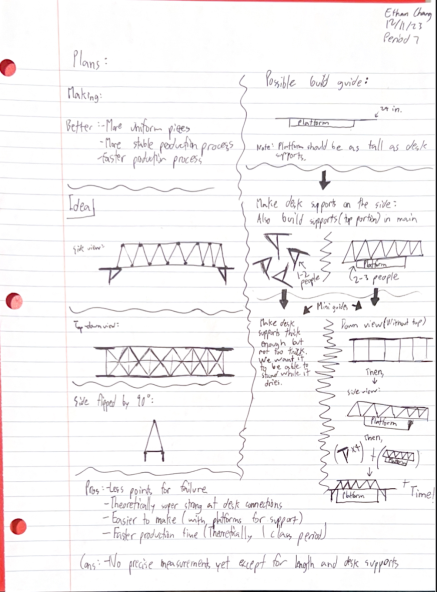 Ethan Chang
12/11/23
Period 7
Plans:
Making:
Better: -More uniform pieces
-More stable production process
-Faster production process
Idea
Side view:
Top-down view:
Side flipped by 90°:
Possible build guide:
24 in.
Platform
Note: Platform should be as tall as desk
supports.
Make desk supports on the side:
Also build supports (top portion) in main
1-2
people
Platform
2-3 people
Mini guides
Make desk
supports thick
enough but
not too thick.
We want it
to be able to
stand while it
dries.
Down view (Without top)
Then,
Side view:
Platform
Then,
x4
+
+ Time!
Platform
Pros: -Less points for failure
-Theoretically super strong at desk connections
-Easier to make (with platforms for support)
-Faster production time (Theoretically 1 class period)
Cons: -No precise measurements yet except for length and desk supports